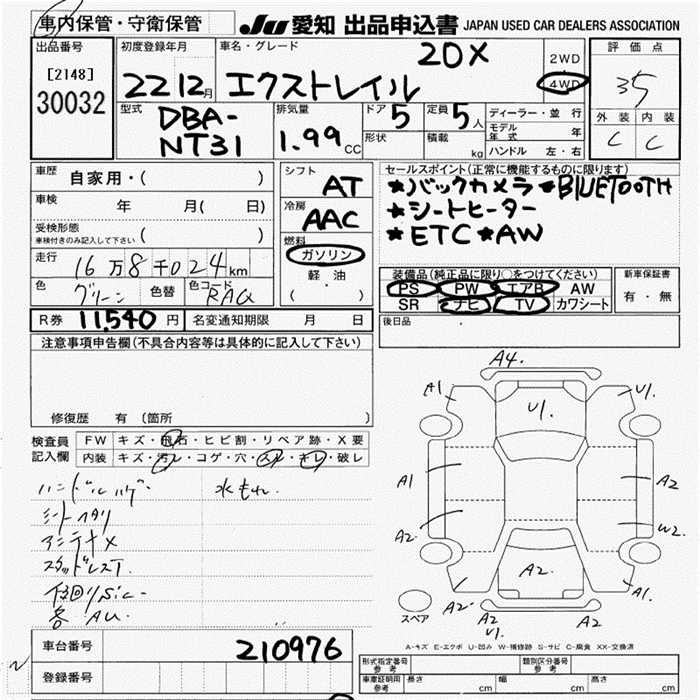 車内保管・守衛保管
JU 愛知 出品申込書 JAPAN USED CAR DEALERS ASSOCIATION
出品番号
[2148]
30032
初度登録年月
22 12月
車名・グレード
20X
エクストレイル
2WD
4WD
評価点
3.5
外装 内装
C C
型式
DBA-
NT31
排気量
1.99 CC
ドア 5
形状
定員 5人
積載 kg
ディーラー・並行
モデル年式 年
ハンドル 左・右
車歴
自家用・( )
車検 年 月( 日)
受検形態
車検付きのみ記入して下さい ( )
走行
16万8千024km
色 グリーン 色替 色コード RAQ
シフト
AT
冷房
AAC
燃料
ガソリン
軽油
( ・ )
セールスポイント(正常に機能するものに限ります)
★バックカメラ★BLUETOOTH
★シートヒーター
★ETC★AW
装備品(純正品に限り○をつけてください)
PS PW エアB AW
SR ナビ TV カワシート
新車保証書
有・無
R券 11,540円 名変通知期限 月 日
後日品
注意事項申告欄(不具合内容等は具体的に記入して下さい)
修復歴 有(箇所 )
検査員
記入欄
FW キズ・飛石・ヒビ割・リペア跡・X要
内装 キズ・汚レ・コゲ・穴・スレ・キレ・破レ
ハンドルハゲ・ 水もれ.
シートヘタリ
アンテナX
スタッドレスT.
下回りSiC-
各AU.
A4.
A1 U1. U1.
A1 A2
A2. W2
A2. A2. A1.
A2 A2.
U1.
スペア
A-キズ E-エクボ U-凹み W-補修跡 S-サビ C-腐食 XX-交換済
車台番号 210976
登録番号
形式指定番号 参考
類別区分番号 参考
車庫証明用 参考 長さ cm 幅 cm 高さ cm